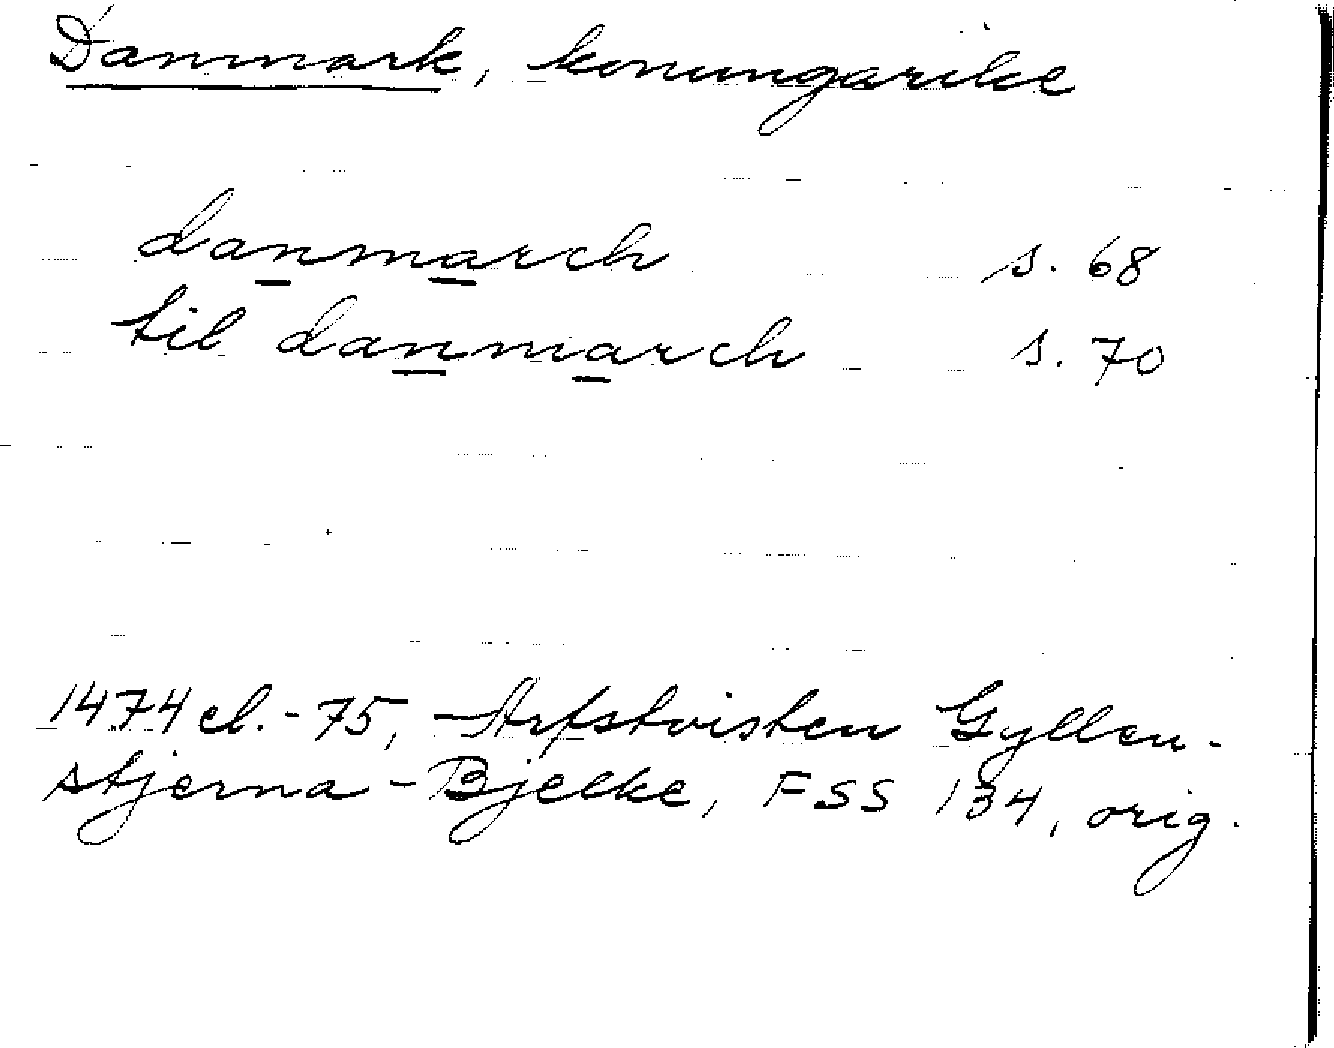 Danmark, konungarike
danmarch s. 68
til danmarch s. 70
1474 el. - 75, Arfstvisten Gyllen-
stjerna - Bjelke, FSS 134, orig.